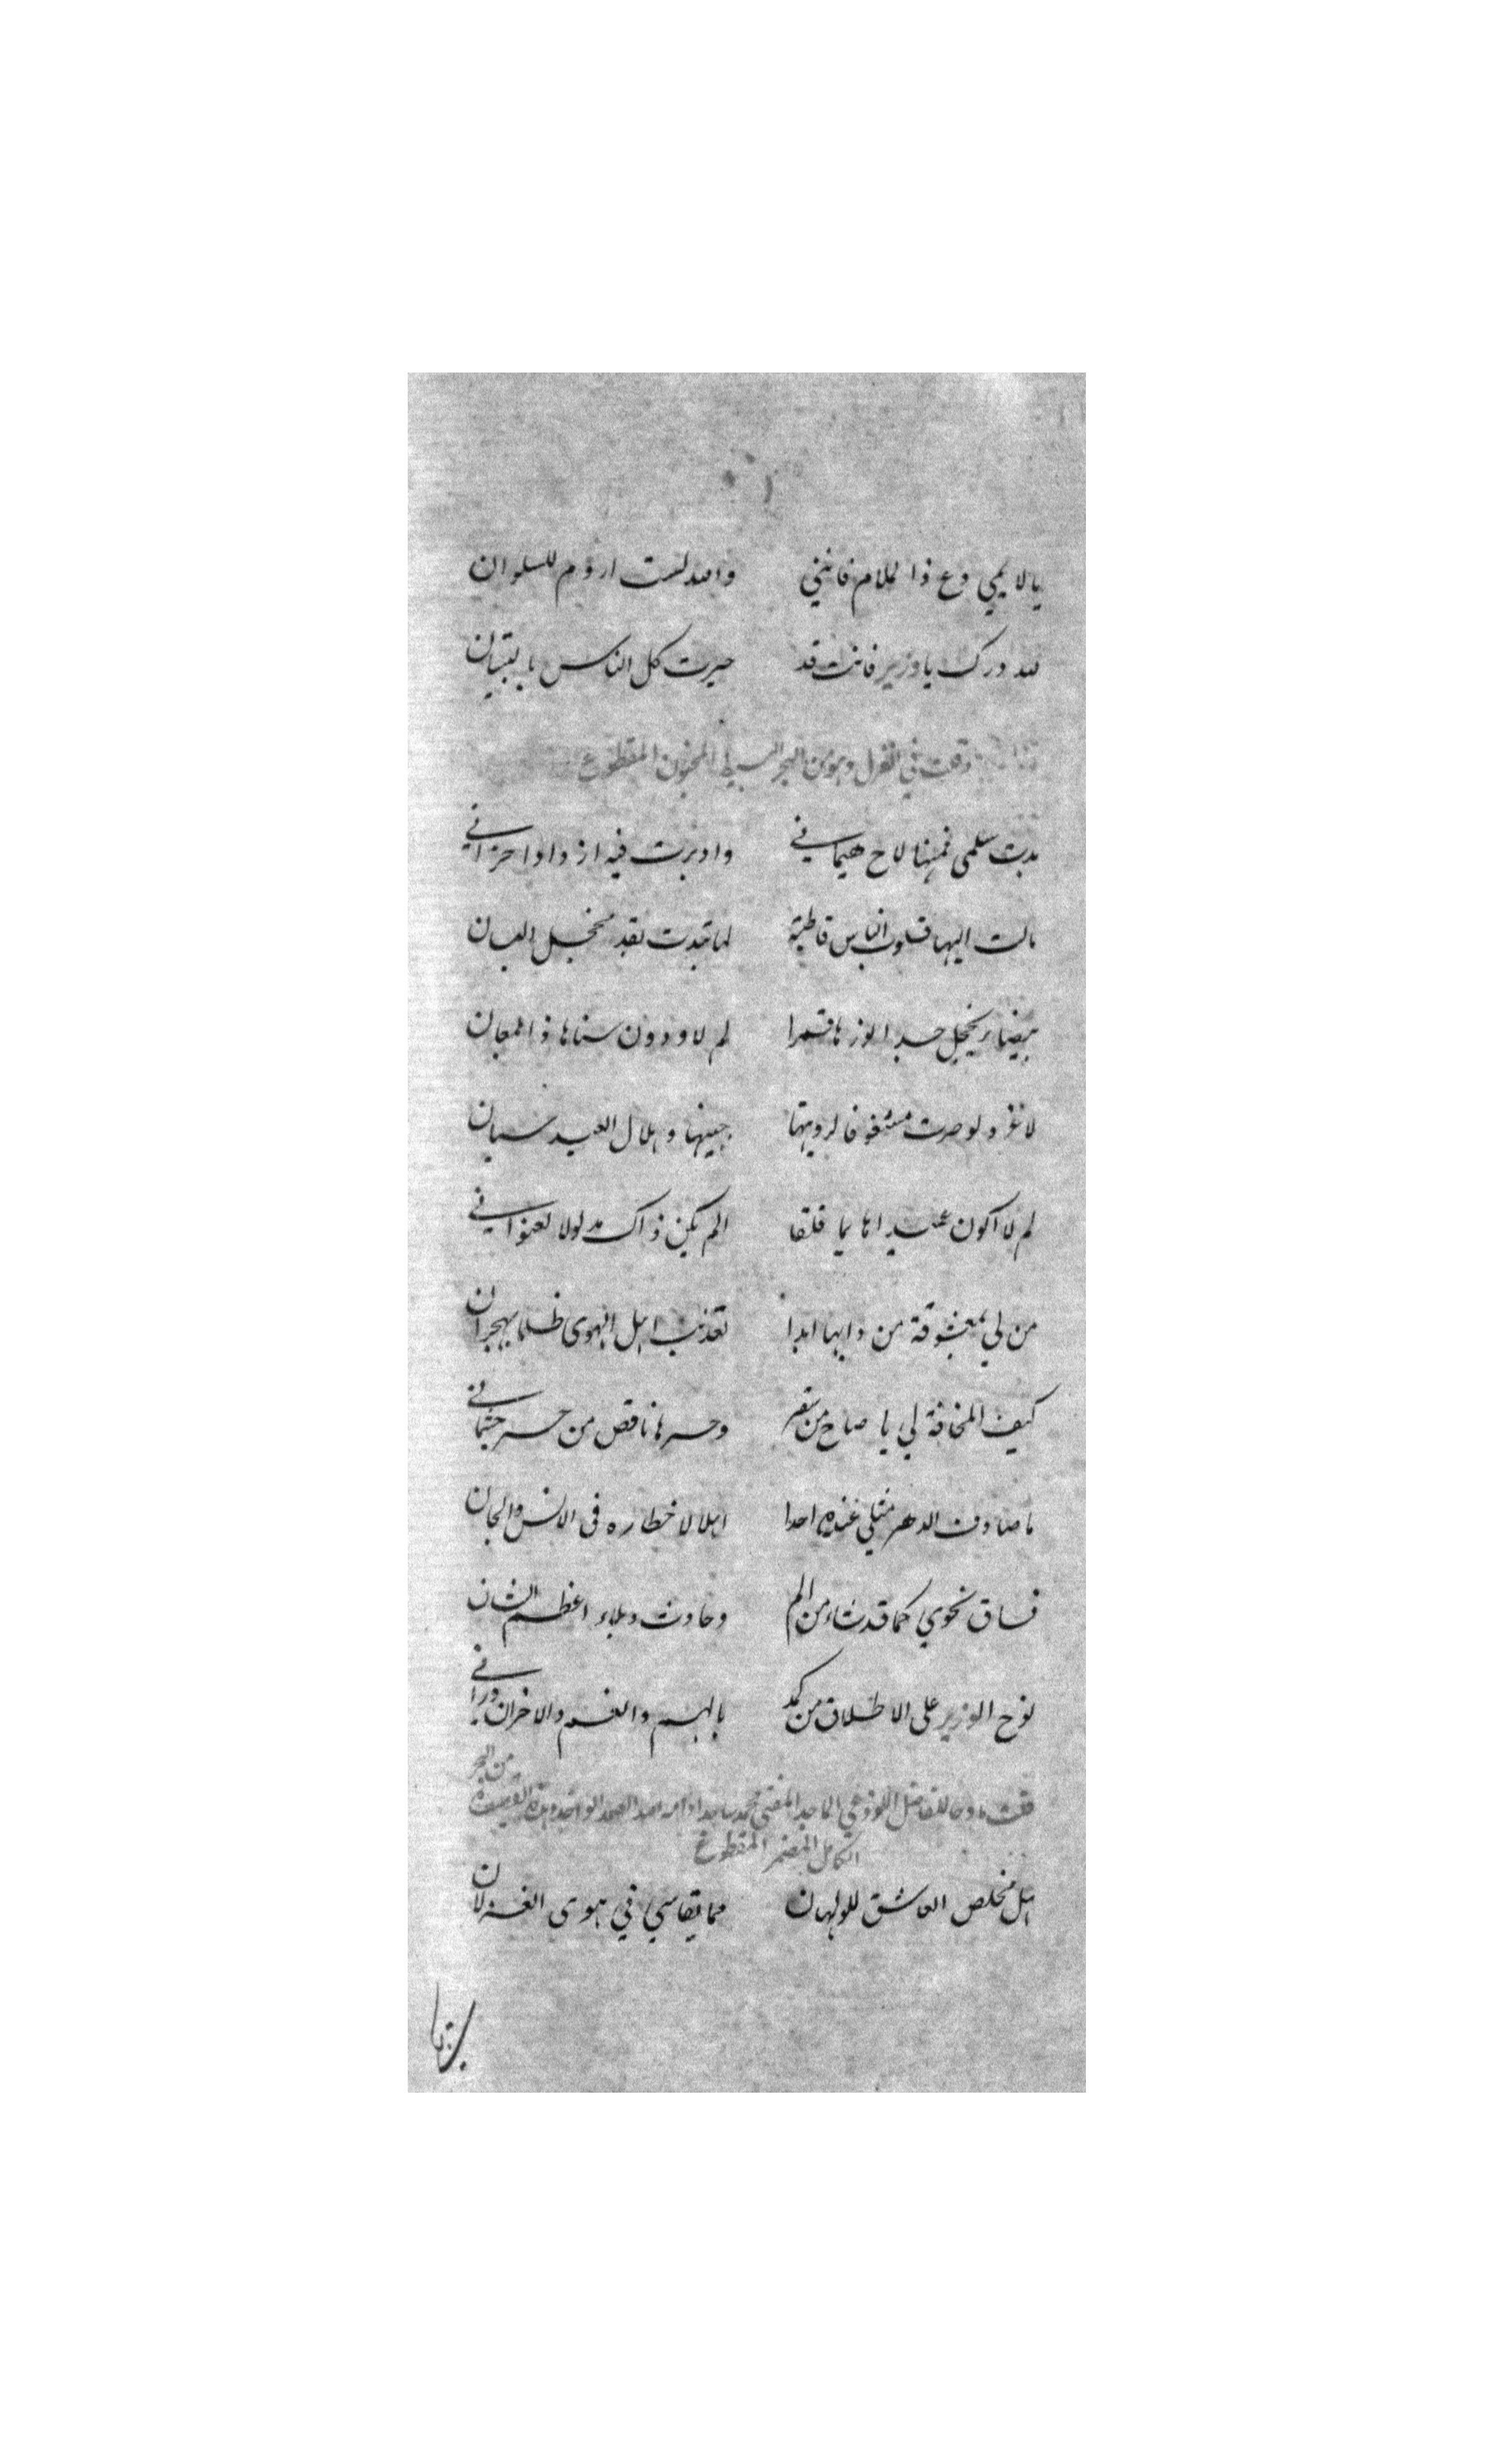 يا لايمي دع ذا الملام فانني والله لست اروم للسلوان
لله درك يا وزير فانت قد حيرت كل الناس بالتبيان
وقلت في الغزل وهو من البحر البسيط المخبون المقطوع
بدت سلمى فمنها لاح هيماني وادبرت فيه ازدادا حزاني
مالت اليها قلوب الناس قاطبة لما تبدت بقد مخجل البان
بيضاء يخجل خد الوزهاقمرا لم لا ودون سناها ذا لمعان
لا غرو لو صرت مشغوفا لرويتها جبينها وهلال العيد سيان
لم لا اكون عميدا هايما قلقا الم يكن ذاك مدلولا لعنواني
من لي بمعشوقة من دابها ابدا تعذيب اهل الهوى ظلما بهجران
كيف المخافة لي يا صاح من سقر وحرها ناقص من حر جثماني
ما صادف الدهر مثلي عنده احدا اهلا لاخطاره في الانس والجان
فساق نحوي كما قد شاء من الم وحادث وبلاء اعظم الشان
نوح الوزير على الاطلاق من كمد بالهم والغم والاحزان وراني
قلت مادحا للفاضل اللوذعي الماجد المفتي محمد ساجد ادامه الله الصمد الواحد وهذه القصيدة من البحر
الكامل المضمر المقطوع
هل مخلص العاشق للولهان مما يقاسي في هوى الغزلان